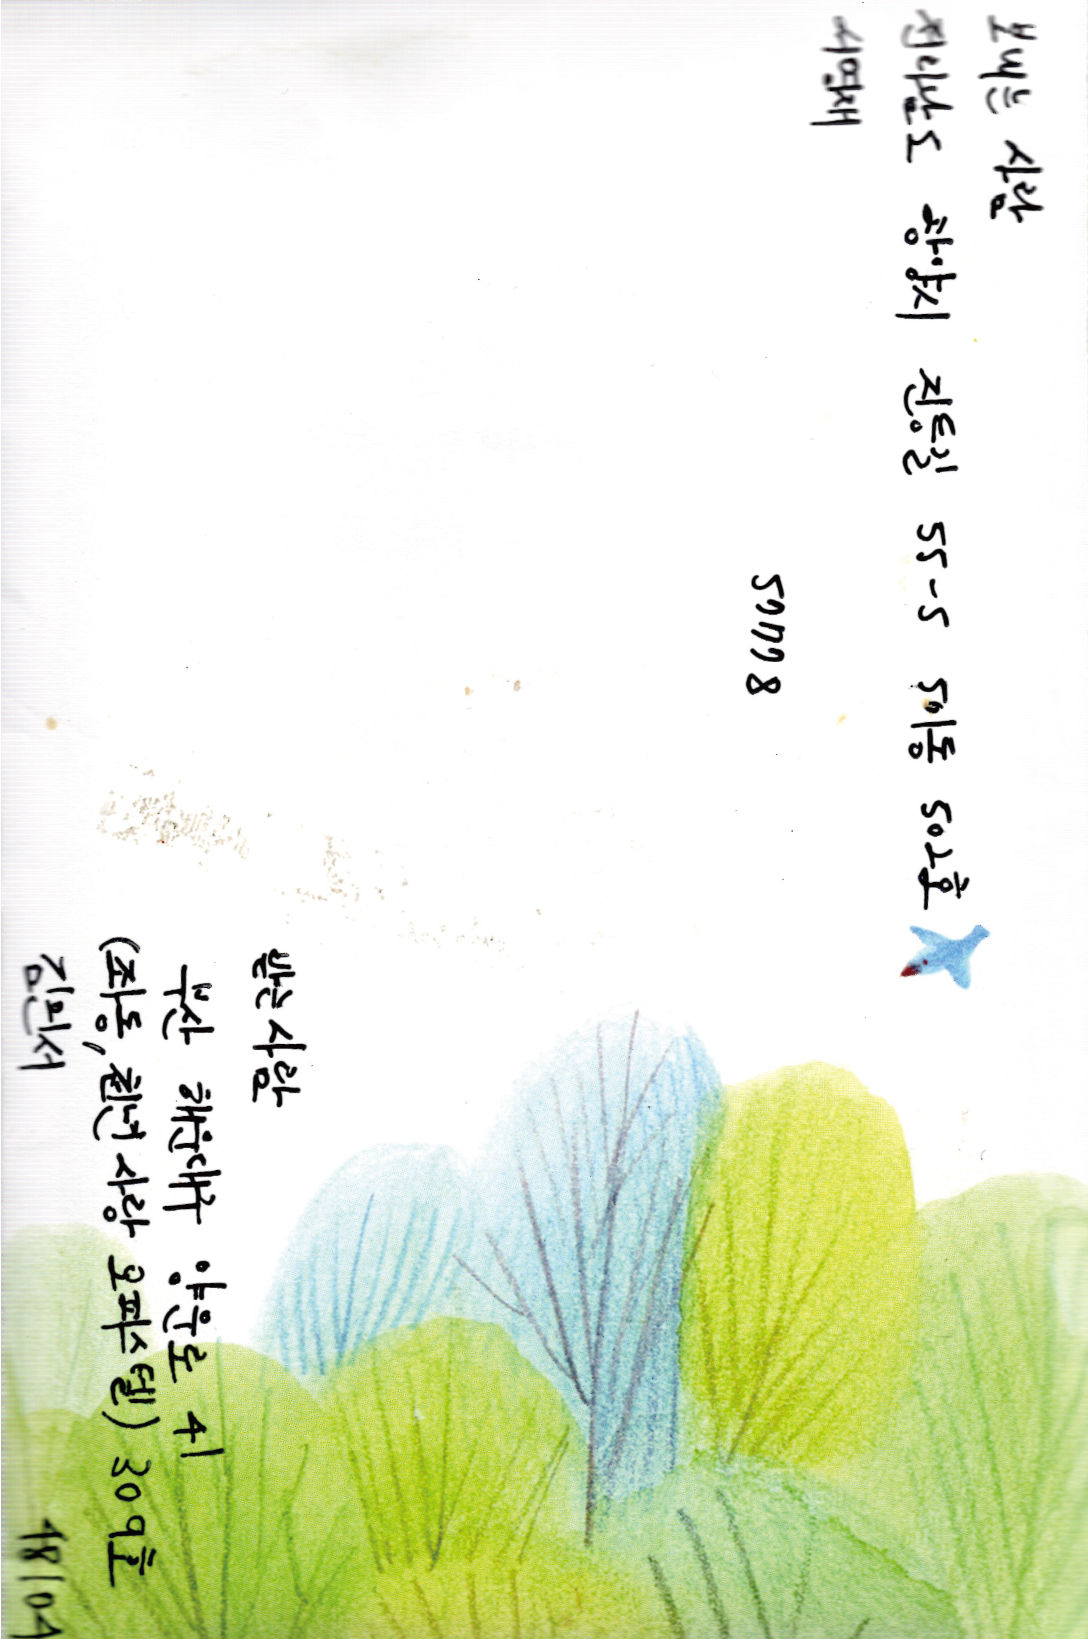 보내는 사람
전라남도 광양시 진등길 55-5 501동 502호
서영채
57778
받는사람
부산 해운대구 양운로 41
(좌동, 천년사랑 오피스텔) 309호
김민서
48109